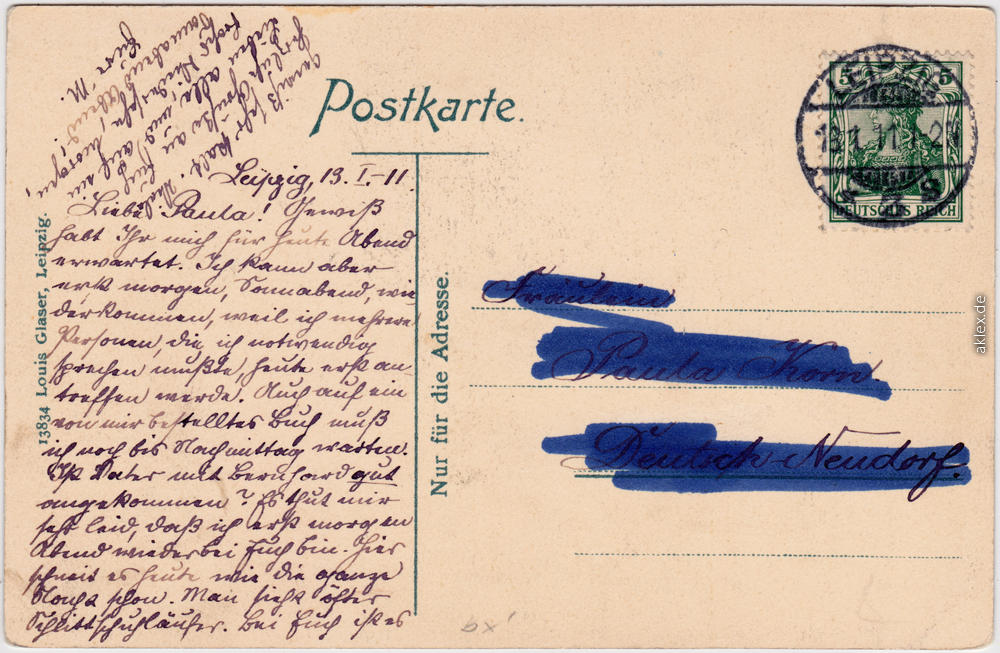 Postkarte.
Leipzig, 13. I.-11.
Liebe Paula! Gewiß
habt Ihr mich für heute Abend
erwartet. Ich kann aber
erst morgen, Sonnabend, wie-
derkommen, weil ich mehrere
Personen, die ich notwendig
sprechen mußte, heute erst an-
treffen werde. Auch auf ein
von mir bestelltes Buch muß
ich noch bis Nachmittag warten.
Ist Vater mit Bernhard gut
angekommen? Es thut mir
sehr leid, daß ich erst morgen
Abend wieder bei Euch bin. Hier
schneit es heute wie die ganze
Nacht schon. Man sieht öfter
Schlittschuhläufer. Bei Euch ist es
gewiß sehr kalt.
Herzliche Grüße an
lieben alle, und
auf
morgen,
Sonnabend Abend!
Eure M.
13834 Louis Glaser, Leipzig.
Nur für die Adresse.
Fräulein
Paula Korn.
Deutsch-Neudorf.
5 5
DEUTSCHES REICH
LEIPZIG
13.1.11.
aklex.de